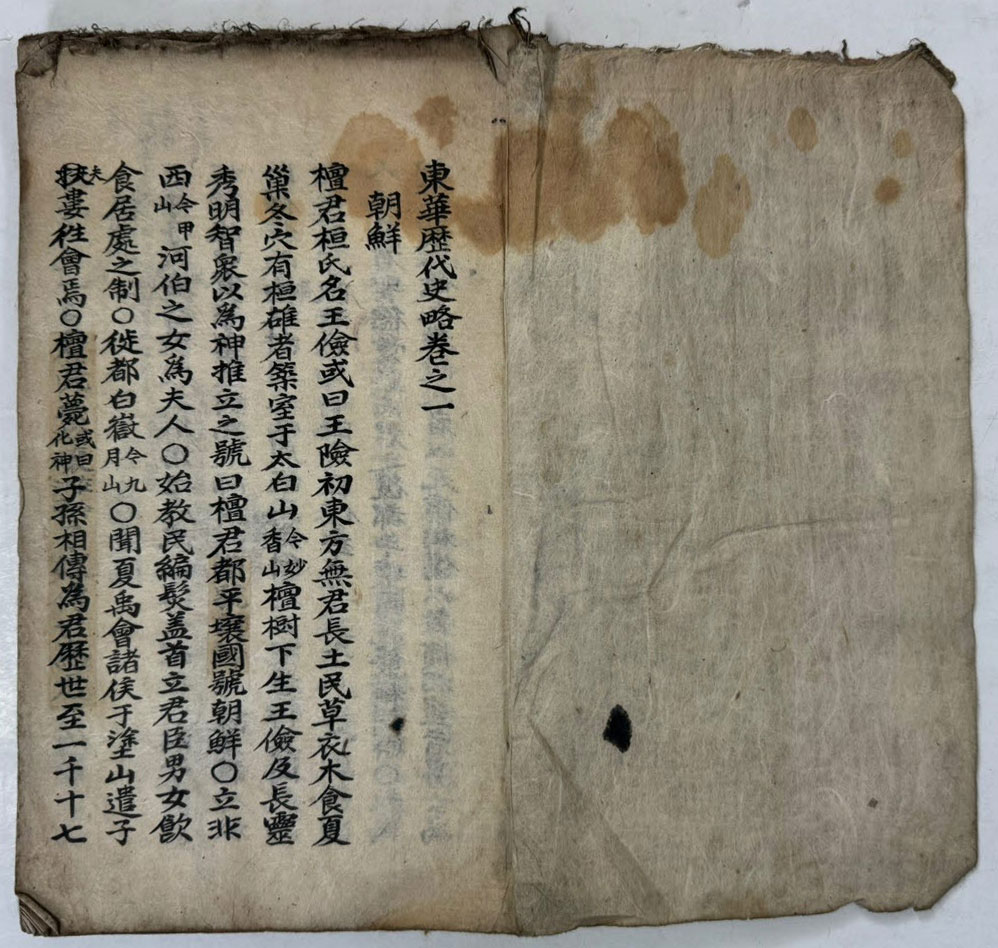 東華歷代史略卷之一
朝鮮
檀君桓氏名王儉或曰王險初東方無君長土民草衣木食夏
巢冬穴有桓雄者築室于太白山今妙香山檀樹下生王儉及長靈
秀明智衆以爲神推立之號曰檀君都平壤國號朝鮮○立非
西岬今甲山河伯之女爲夫人○始教民編髮盖首立君臣男女飮
食居處之制○徙都白嶽今九月山○聞夏禹會諸侯于塗山遣子
扶夫婁徃會焉○檀君薨或曰化神子孫相傳為君歷世至一千十七